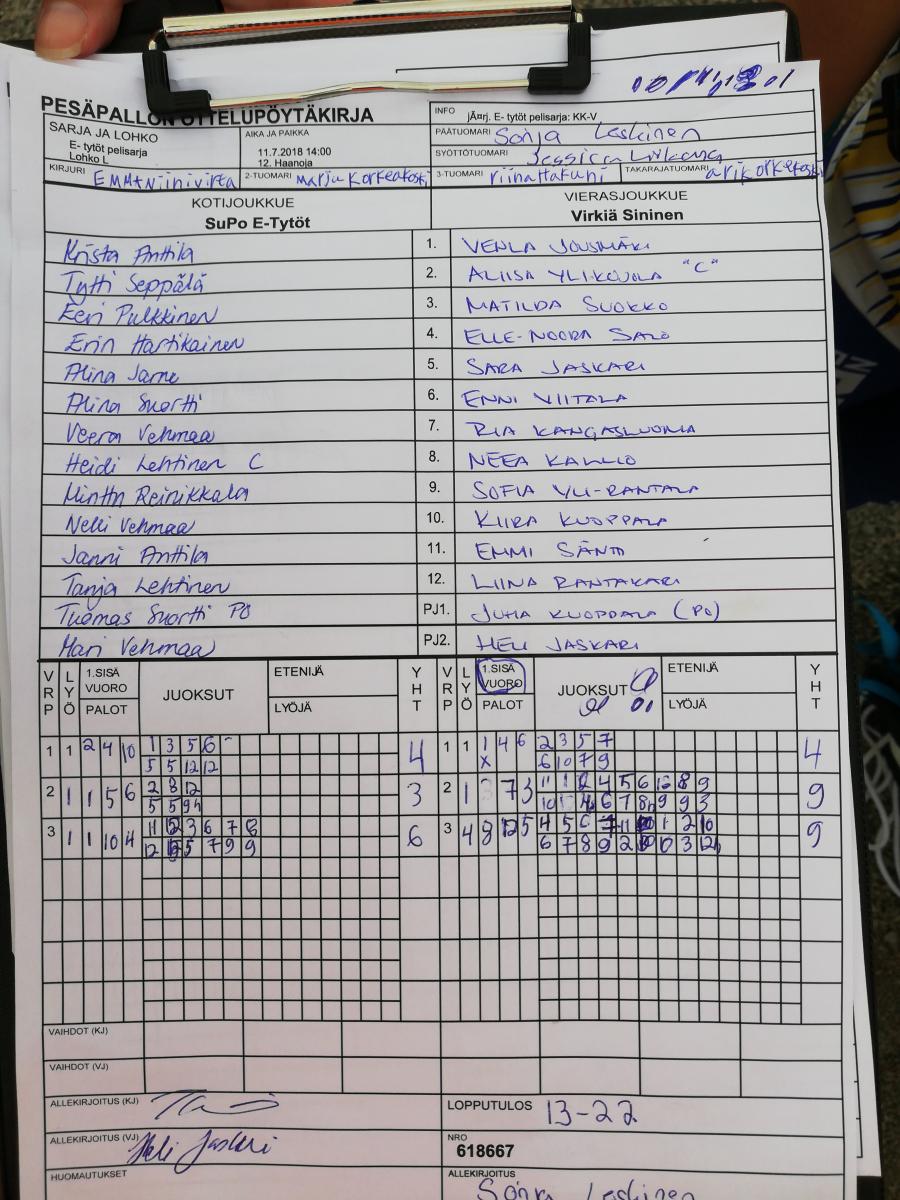 PESÄPALLON OTTELUPÖYTÄKIRJA
INFO
jÃ¤rj. E- tytöt pelisarja: KK-V
SARJA JA LOHKO
E- tytöt pelisarja
Lohko L
AIKA JA PAIKKA
11.7.2018 14:00
12. Haanoja
PÄÄTUOMARI Sonja Leskinen
SYÖTTÖTUOMARI Jessica
KIRJURI EMMA Niinivirta
2-TUOMARI Marja Korkeakoski
3-TUOMARI riina Hakuni
TAKARAJATUOMARI arikorkeakoski
KOTIJOUKKUE
SuPo E-Tytöt
VIERASJOUKKUE
Virkiä Sininen
Krista Anttila 1. VENLA JOUSMÄKI
Tytti Seppälä 2. ALIISA YLIKOJOLA "C"
Eeri Pulkkinen 3. MATILDA SUOKKO
Erin Hartikainen 4. ELLE-NOORA SALO
Alina Jarne 5. SARA JASKARI
Alina Suortti 6. ENNI VIITALA
Veera Vehmaa 7. RIA KANGASLUOMA
Heidi Lehtinen C 8. NEEA KALLIO
Minttu Reinikkala 9. SOFIA YLI-RANTALA
Nelli Vehmaa 10. KIIRA KUOPPALA
Janni Anttila 11. EMMI SÄNTI
Tanja Lehtinen 12. LIINA RANTAKARI
Tuomas Suortti PJ1. JUHA KUOPPALA (PJ)
Mari Vehmaa PJ2. HELI JASKARI
VRP LYÖ 1.SISÄ VUORO PALOT JUOKSUT ETENIJÄ LYÖJÄ YHT
VRP LYÖ 1.SISÄ VUORO PALOT JUOKSUT ETENIJÄ LYÖJÄ YHT
1 1 2 4 10 1 3 5 6 4 1 1 1 4 6 2 3 5 7 4
5 5 12 12 X 6 10 7 9
2 1 1 5 6 2 8 12 3 2 1 73 9
3 1 1 10 4 6 3 4 8 12 5 9
VAIHDOT (KJ)
VAIHDOT (VJ)
ALLEKIRJOITUS (KJ)
LOPPUTULOS 13-22
ALLEKIRJOITUS (VJ) Heli Jaskari
NRO
618667
HUOMAUTUKSET
ALLEKIRJOITUS
Sonja Leskinen